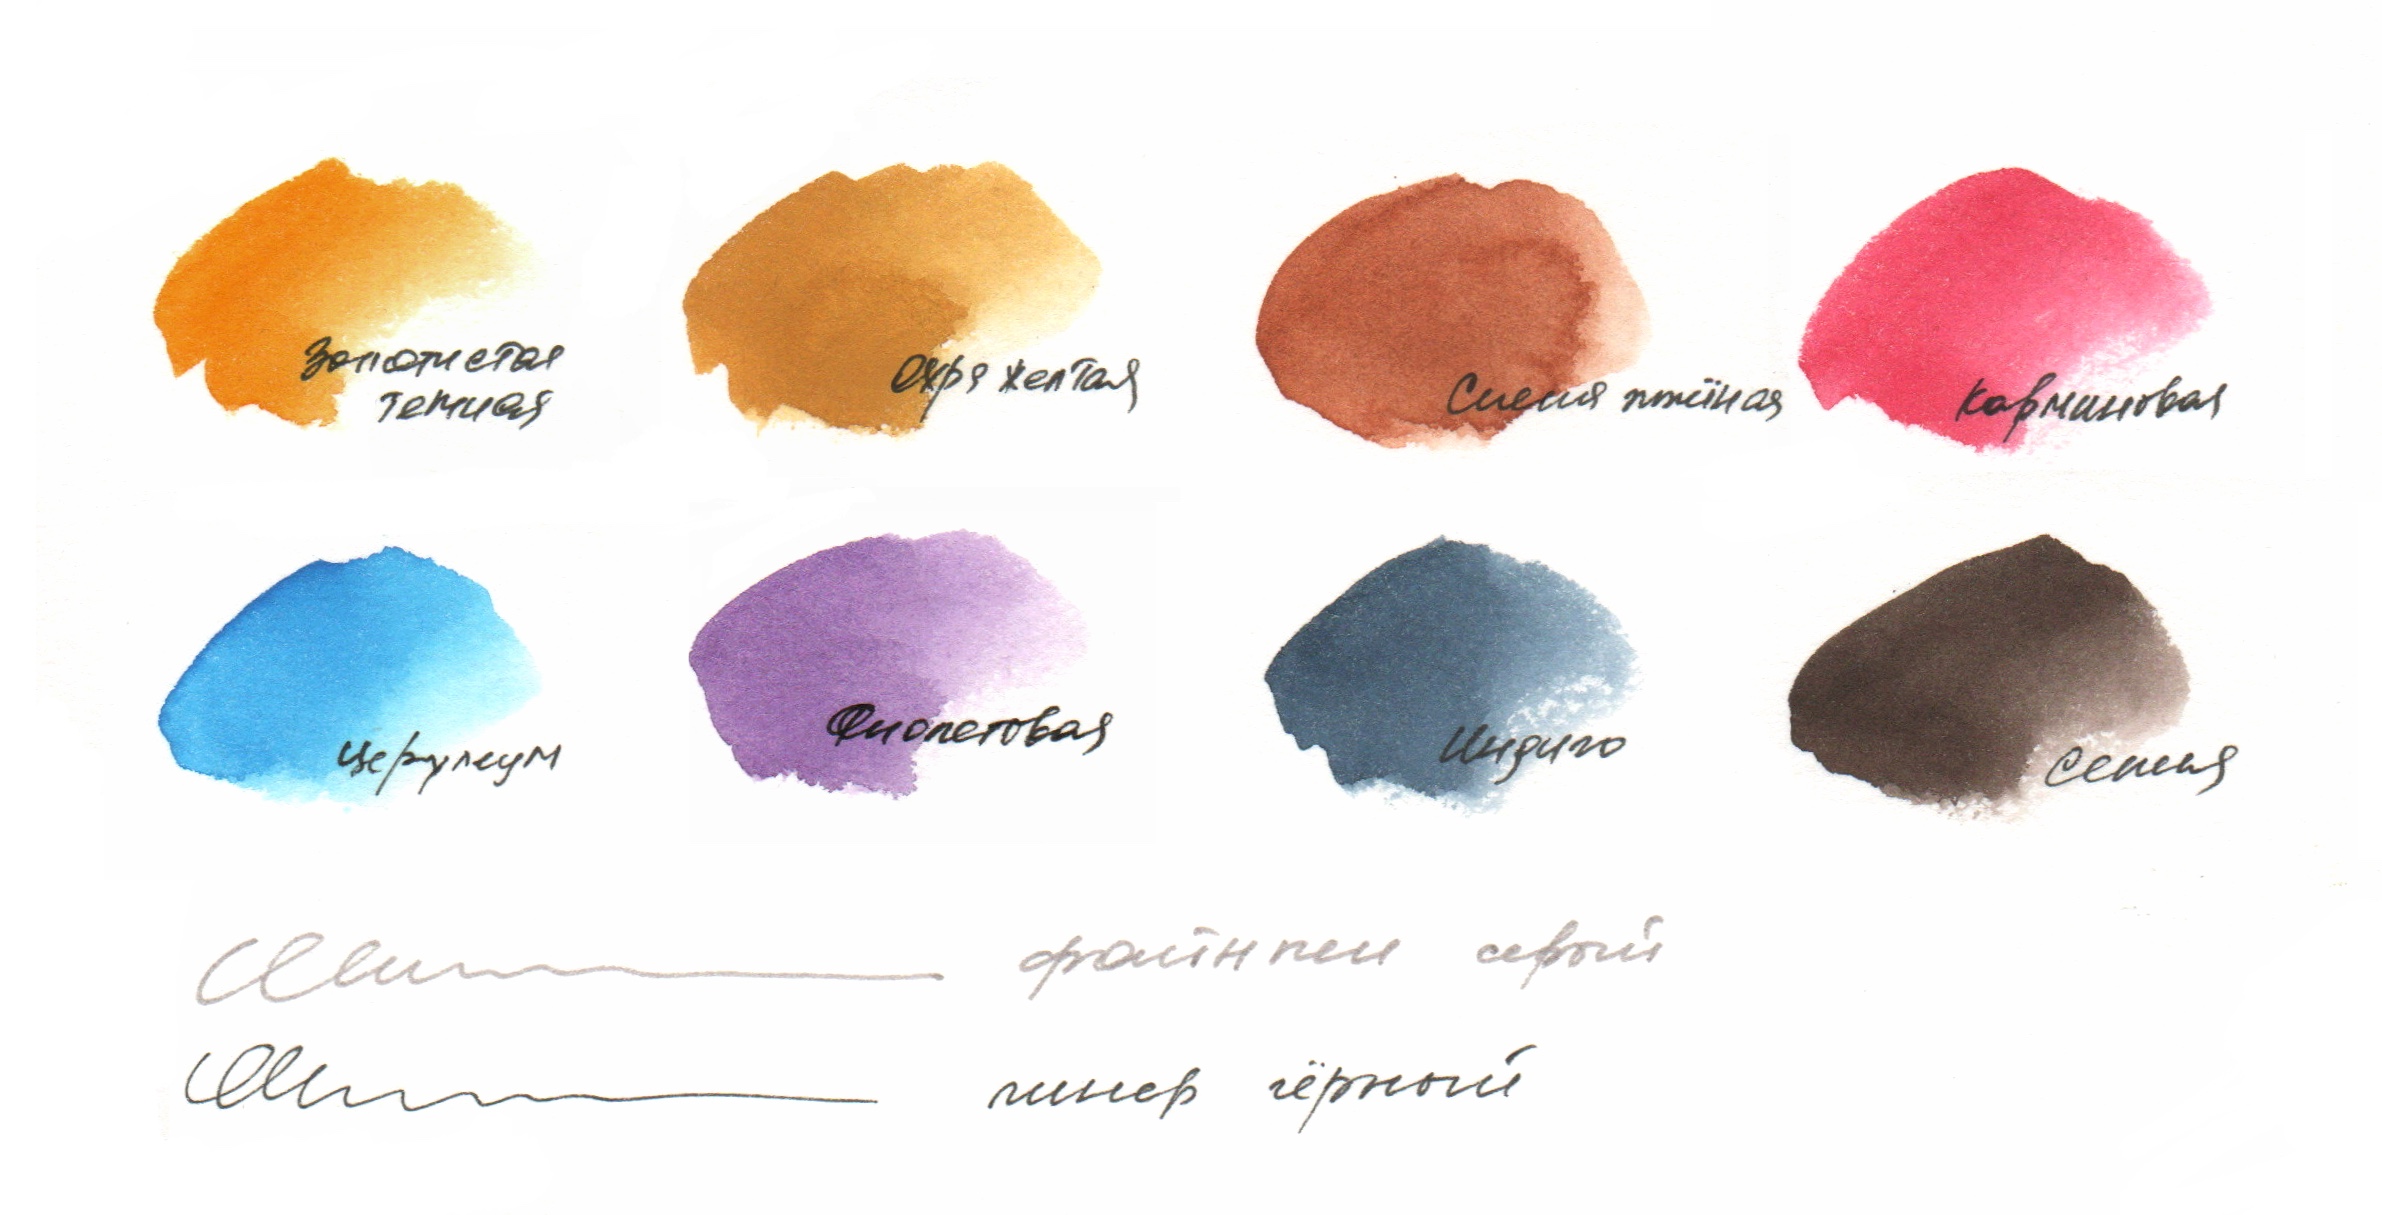 Золотистая
темная
Охра желтая
Сиена жжёная
Карминовая
Церулеум
Фиолетовая
Индиго
Сепия
файнпен серый
линер чёрный